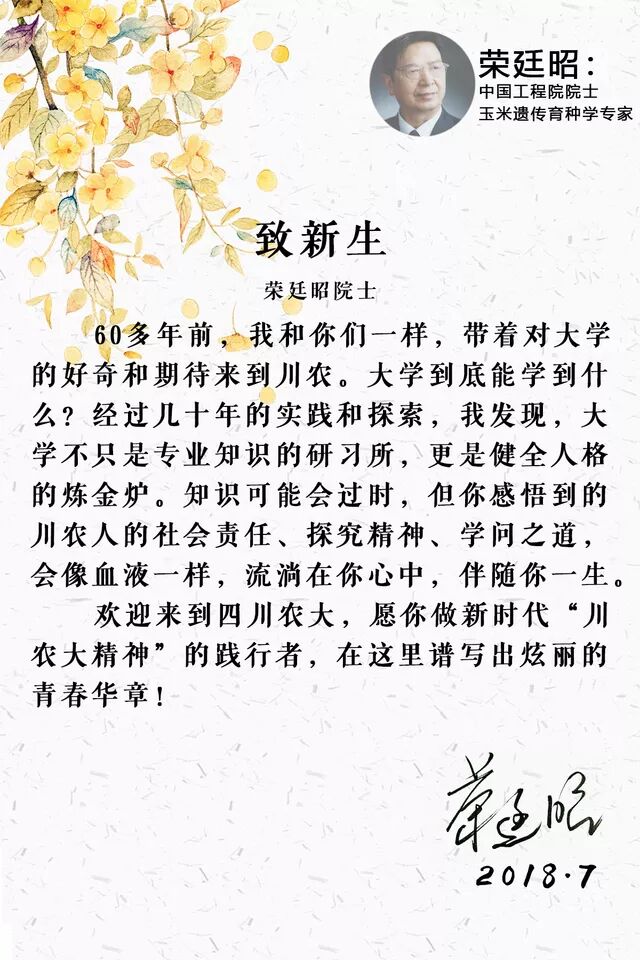 荣廷昭：
中国工程院院士
玉米遗传育种学专家
致新生
荣廷昭院士
60多年前，我和你们一样，带着对大学
的好奇和期待来到川农。大学到底能学到什
么？经过几十年的实践和探索，我发现，大
学不只是专业知识的研习所，更是健全人格
的炼金炉。知识可能会过时，但你感悟到的
川农人的社会责任、探究精神、学问之道，
会像血液一样，流淌在你心中，伴随你一生。
欢迎来到四川农大，愿你做新时代“川
农大精神”的践行者，在这里谱写出炫丽的
青春华章！
荣廷昭
2018.7